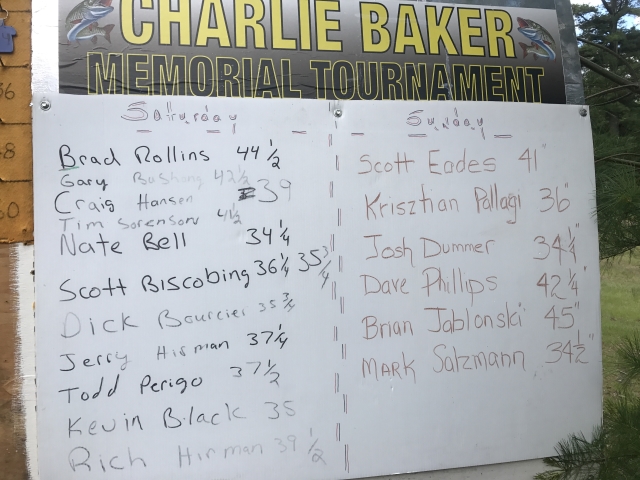 CHARLIE BAKER
MEMORIAL TOURNAMENT
Saturday
Brad Rollins 44 1/2
Gary Bushong 42 1/2
Craig Hansen 39
Tim Sorenson 41/2
Nate Bell 34 1/4
Scott Biscobing 36 1/4 35 3/4
Dick Bourcier 35 3/4
Jerry Hirman 37 1/4
Todd Perigo 37 1/2
Kevin Black 35
Rich Hirman 39 1/2
Sunday
Scott Eades 41"
Krisztian Pallagi 36"
Josh Dummer 34 1/4"
Dave Phillips 42 1/4"
Brian Jablonski 45"
Mark Salzmann 34 1/2"